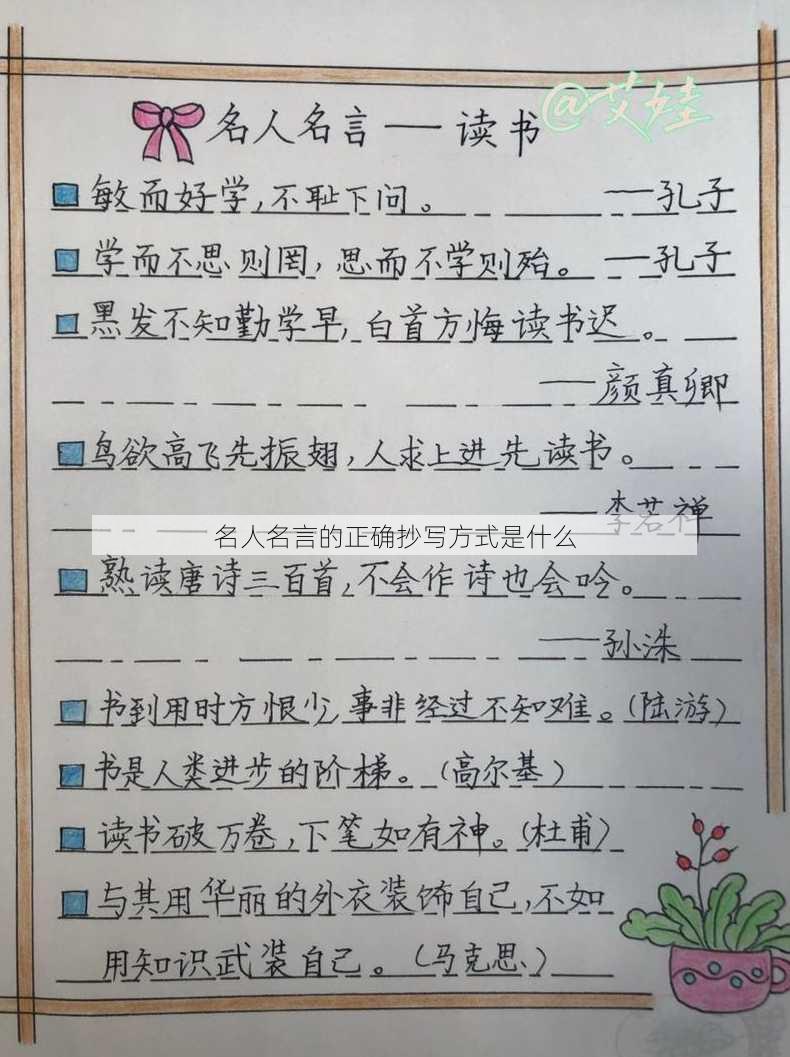 @艾娃
名人名言——读书
敏而好学,不耻下问。 ——孔子
学而不思则罔,思而不学则殆。 ——孔子
黑发不知勤学早,白首方悔读书迟。
——颜真卿
鸟欲高飞先振翅,人求上进先读书。
——李若禅
名人名言的正确抄写方式是什么
熟读唐诗三百首,不会作诗也会吟。
——孙洙
书到用时方恨少,事非经过不知难。(陆游)
书是人类进步的阶梯。(高尔基)
读书破万卷,下笔如有神。(杜甫)
与其用华丽的外衣装饰自己,不如
用知识武装自己。(马克思)